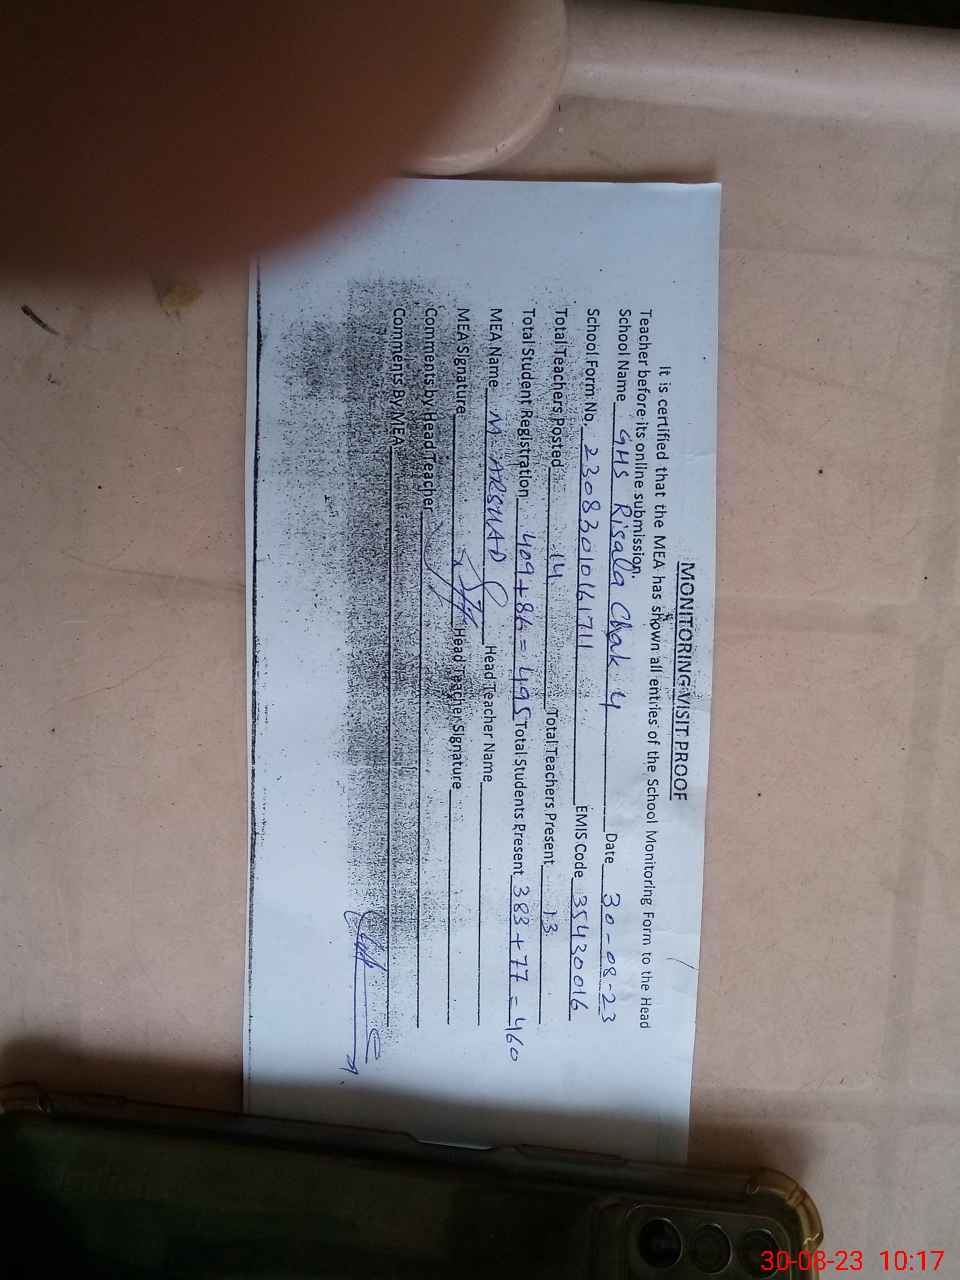 MONITORING VISIT PROOF
It is certified that the MEA has shown all entries of the School Monitoring Form to the Head
Teacher before its online submission.
School Name GHS Risala Chak 4 Date 30-08-23
School Form No. 23083010161711 EMIS Code 35430016
Total Teachers Posted 14 Total Teachers Present 13
Total Student Registration 409+86=495 Total Students Present 383+77=460
MEA Name M. ARSHAD Head Teacher Name
MEA Signature Head Teacher Signature
Comments by Head Teacher
Comments By MEA
30-08-23 10:17